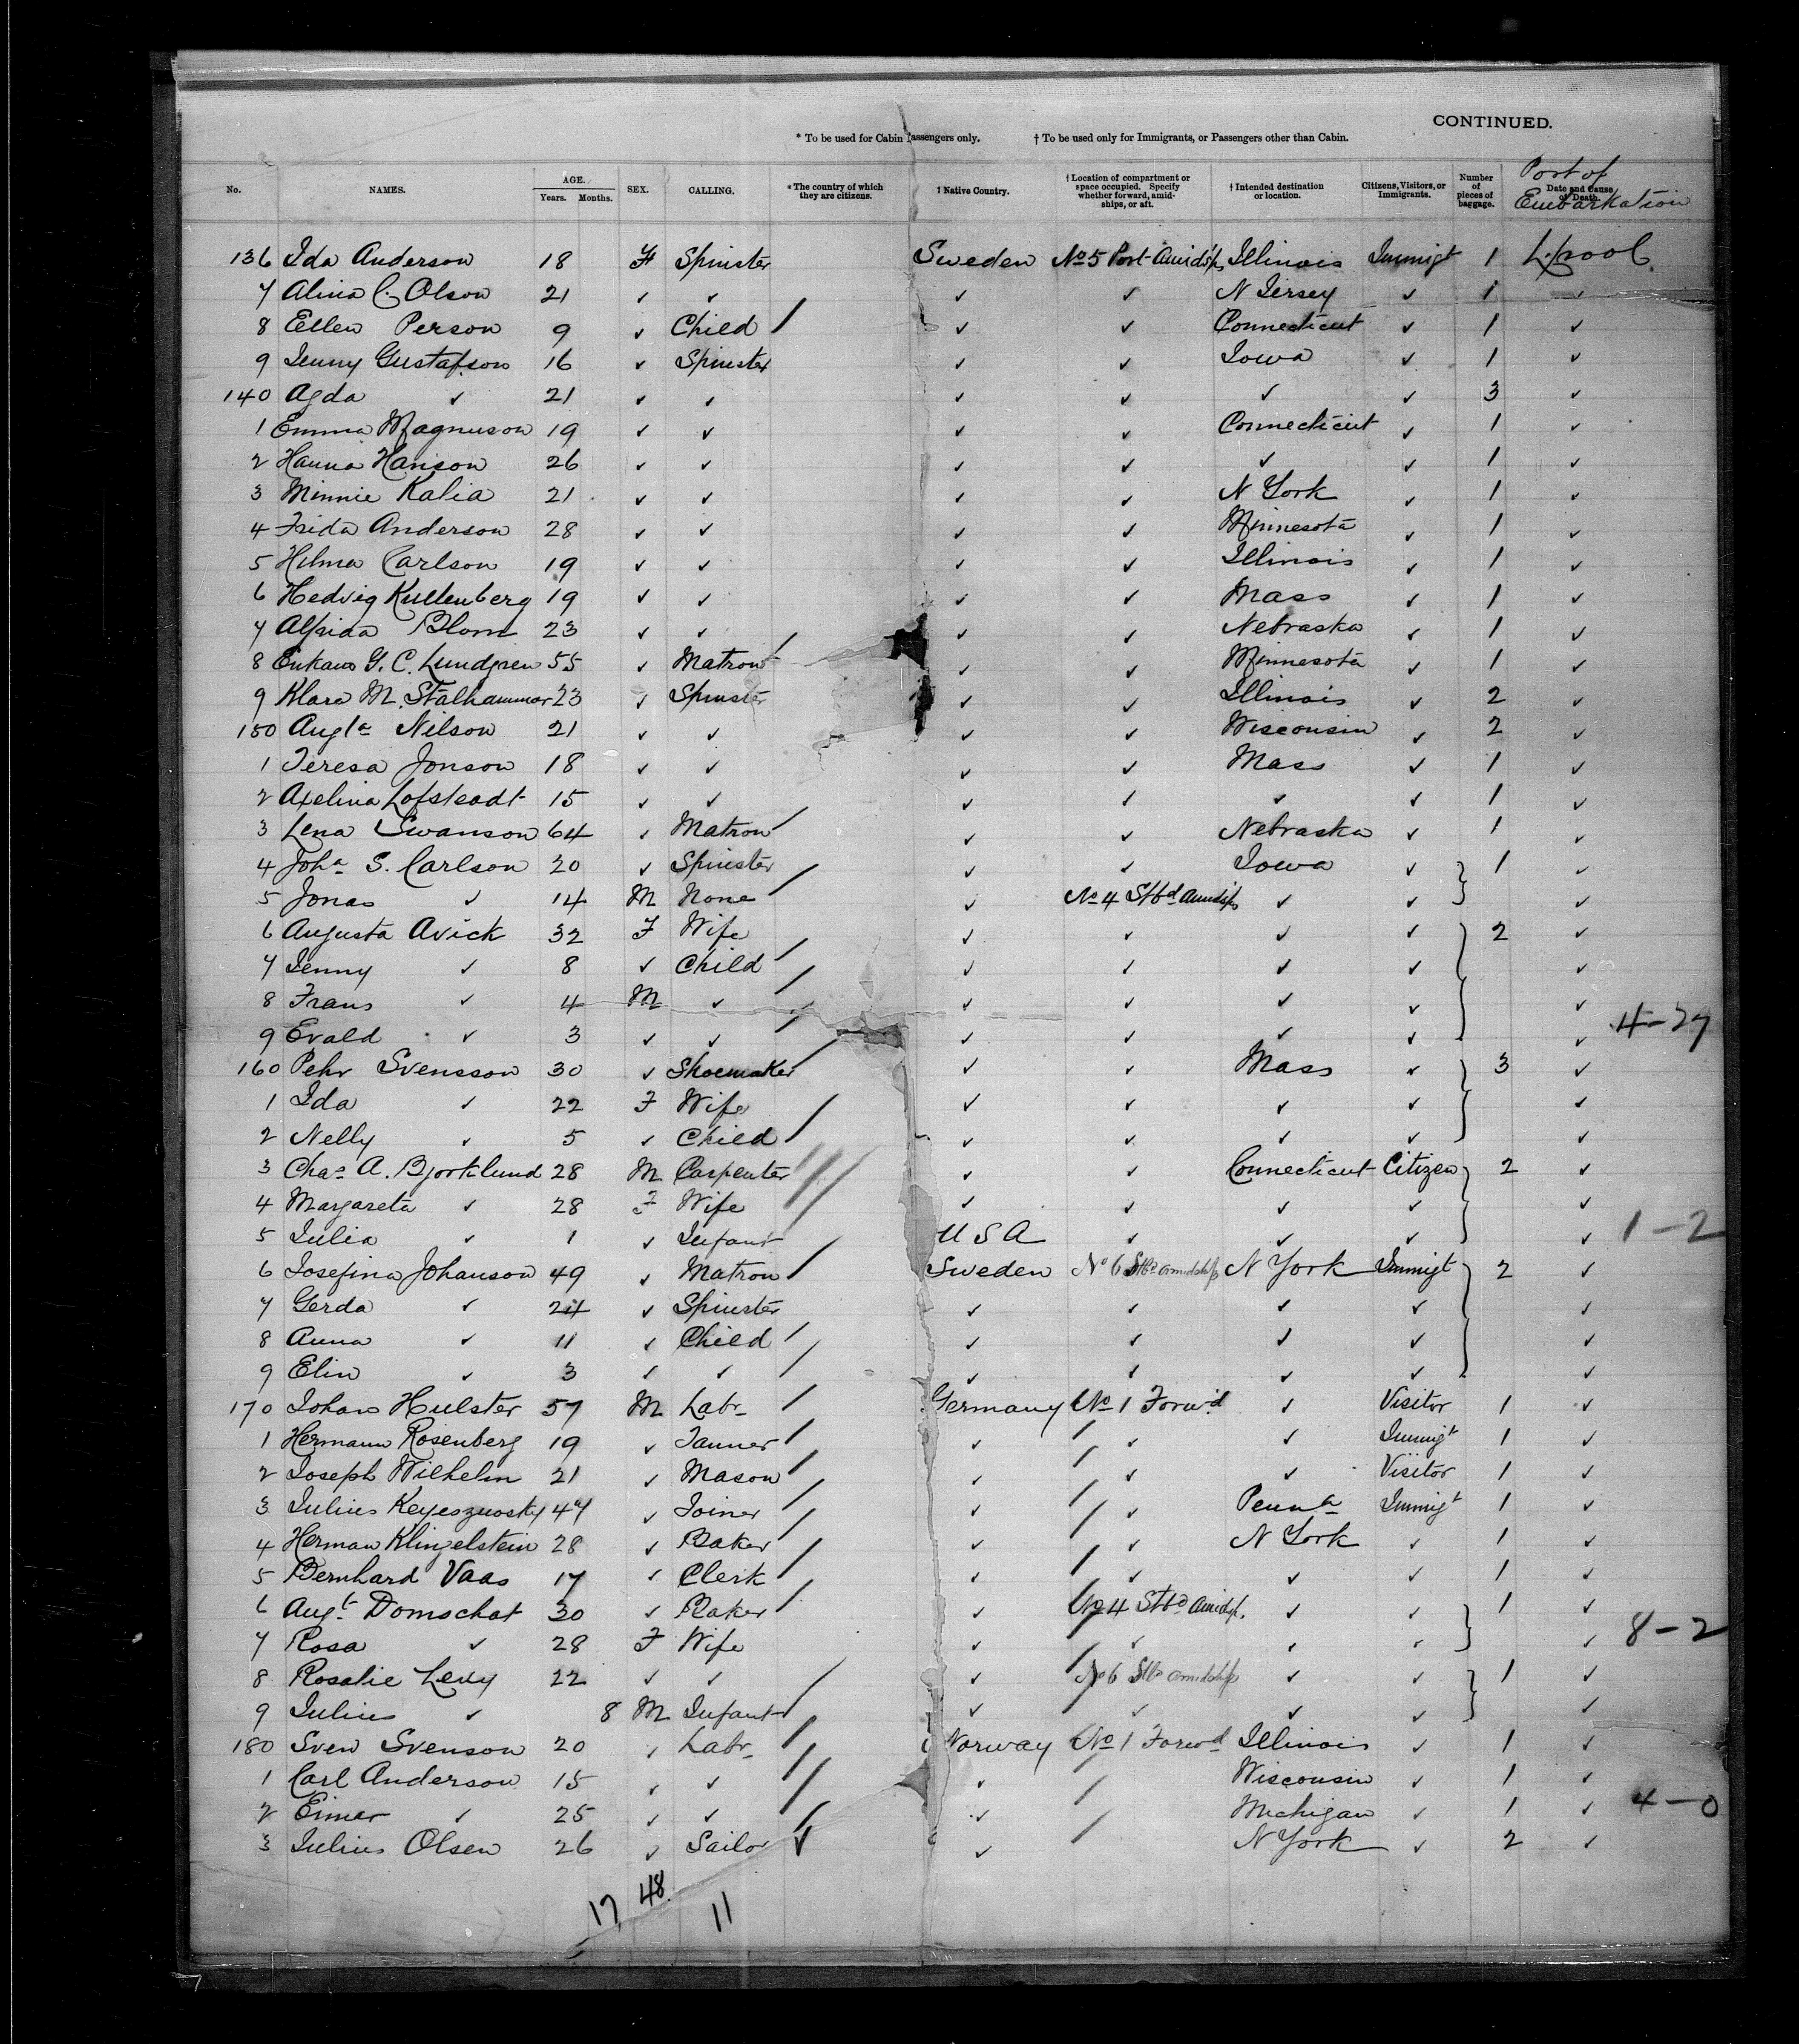 CONTINUED.
* To be used for Cabin Passengers only. † To be used only for Immigrants, or Passengers other than Cabin.
No. NAMES. AGE. Years. Months. SEX. CALLING. * The country of which they are citizens. † Native Country. † Location of compartment or space occupied. Specify whether forward, amidships, or aft. † Intended destination or location. Citizens, Visitors, or Immigrants. Number of pieces of baggage. Date and Cause of Death. Port of Embarkation
136 Ida Anderson 18 F Spinster Sweden No 5 Port Amidsps Illinois Immigt 1 L.pool
7 Alina C. Olson 21 ✓ ✓ ✓ ✓ N Jersey ✓ 1 ✓
8 Ellen Person 9 ✓ Child / ✓ ✓ Connecticut ✓ 1 ✓
9 Jenny Gustafson 16 ✓ Spinster ✓ ✓ Iowa ✓ 1 ✓
140 Agda ✓ 21 ✓ ✓ ✓ ✓ ✓ ✓ 3 ✓
1 Emma Magnuson 19 ✓ ✓ ✓ ✓ Connecticut ✓ 1 ✓
2 Hanna Hanson 26 ✓ ✓ ✓ ✓ ✓ ✓ 1 ✓
3 Minnie Kalia 21 ✓ ✓ ✓ ✓ N York ✓ 1 ✓
4 Frida Anderson 28 ✓ ✓ ✓ ✓ Minnesota ✓ 1 ✓
5 Hilma Carlson 19 ✓ ✓ ✓ ✓ Illinois ✓ 1 ✓
6 Hedvig Kullenberg 19 ✓ ✓ ✓ ✓ Mass ✓ 1 ✓
7 Alfrida Blom 23 ✓ ✓ ✓ ✓ Nebraska ✓ 1 ✓
8 G. C. Lundgren 55 ✓ Matron / ✓ ✓ Minnesota ✓ 1 ✓
9 Klara M. Stalhammar 23 ✓ Spinster ✓ ✓ Illinois ✓ 2 ✓
150 Augta Nilson 21 ✓ ✓ ✓ ✓ Wisconsin ✓ 2 ✓
1 Teresa Jonson 18 ✓ ✓ ✓ ✓ Mass ✓ 1 ✓
2 Axelina Lofsteadt 15 ✓ ✓ ✓ ✓ ✓ ✓ 1 ✓
3 Lena Swanson 64 ✓ Matron / ✓ ✓ Nebraska ✓ 1 ✓
4 Joha S. Carlson 20 ✓ Spinster ✓ ✓ Iowa ✓ 1 ✓
5 Jonas ✓ 14 M None / ✓ No 4 Stbd Amidsps ✓ ✓ ✓
6 Augusta Avick 32 F Wife ✓ ✓ ✓ ✓ 2 ✓
7 Jenny ✓ 8 ✓ Child / ✓ ✓ ✓ ✓ ✓
8 Frans ✓ 4 M ✓ / ✓ ✓ ✓ ✓ ✓
9 Evald ✓ 3 ✓ ✓ / ✓ ✓ ✓ ✓ ✓ 4-27
160 Pehr Svensson 30 ✓ Shoemaker / ✓ ✓ Mass ✓ 3 ✓
1 Ida ✓ 22 F Wife ✓ ✓ ✓ ✓ ✓
2 Nelly ✓ 5 ✓ Child / ✓ ✓ ✓ ✓ ✓
3 Chas A. Bjorklund 28 M Carpenter ✓ ✓ Connecticut Citizen 2 ✓
4 Margareta ✓ 28 F Wife ✓ ✓ ✓ ✓ ✓
5 Julia ✓ 1 ✓ Infant U S A ✓ ✓ ✓ ✓ 1-2
6 Josefina Johanson 49 ✓ Matron / Sweden No 6 Stbd amidships N York Immigt 2 ✓
7 Gerda ✓ 24 ✓ Spinster ✓ ✓ ✓ ✓ ✓
8 Anna ✓ 11 ✓ Child / ✓ ✓ ✓ ✓ ✓
9 Elin ✓ 3 ✓ ✓ / ✓ ✓ ✓ ✓ ✓
170 Johan Hulster 57 M Labr / Germany No 1 Forwd ✓ Visitor 1 ✓
1 Hermann Rosenberg 19 ✓ Tanner / ✓ ✓ ✓ Immigt 1 ✓
2 Joseph Wilhelm 21 ✓ Mason / ✓ ✓ ✓ Visitor 1 ✓
3 Julius Keyeszuosky 47 ✓ Joiner / ✓ ✓ Penna Immigt 1 ✓
4 Herman Klingelstein 28 ✓ Baker / ✓ ✓ N York ✓ 1 ✓
5 Bernhard Vaas 17 ✓ Clerk / ✓ ✓ ✓ ✓ 1 ✓
6 Augt Domschat 30 ✓ Baker / ✓ No 4 Stbd Amidsp. ✓ ✓ 1 ✓
7 Rosa ✓ 28 F Wife ✓ ✓ ✓ ✓ ✓ 8-2
8 Rosalie Levy 22 ✓ ✓ ✓ No 6 Stbd amidships ✓ ✓ 1 ✓
9 Julius ✓ 8 M Infant / ✓ ✓ ✓ ✓ ✓
180 Sven Svenson 20 ✓ Labr / Norway No 1 Forwd Illinois ✓ 1 ✓
1 Carl Anderson 15 ✓ ✓ ✓ Wisconsin ✓ 1 ✓
2 Eimar ✓ 25 ✓ ✓ ✓ Michigan ✓ 1 ✓ 4-0
3 Julius Olsen 26 ✓ Sailor ✓ ✓ N York ✓ 2 ✓
17 48 11